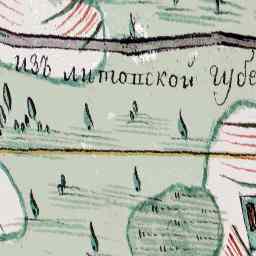 изъ литовской губе